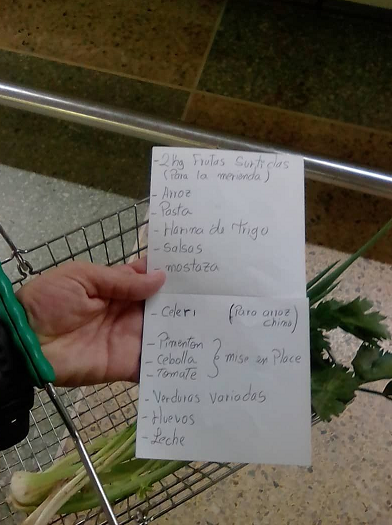 - 2 kg Frutas Surtidas
(Para la merienda)
- Arroz
- Pasta
- Harina de Trigo
- Salsas
- mostaza
- Celeri (Para arroz
chino)
- Pimenton
- Cebolla } mise en Place
- Tomate
- Verduras variadas
- Huevos
- Leche